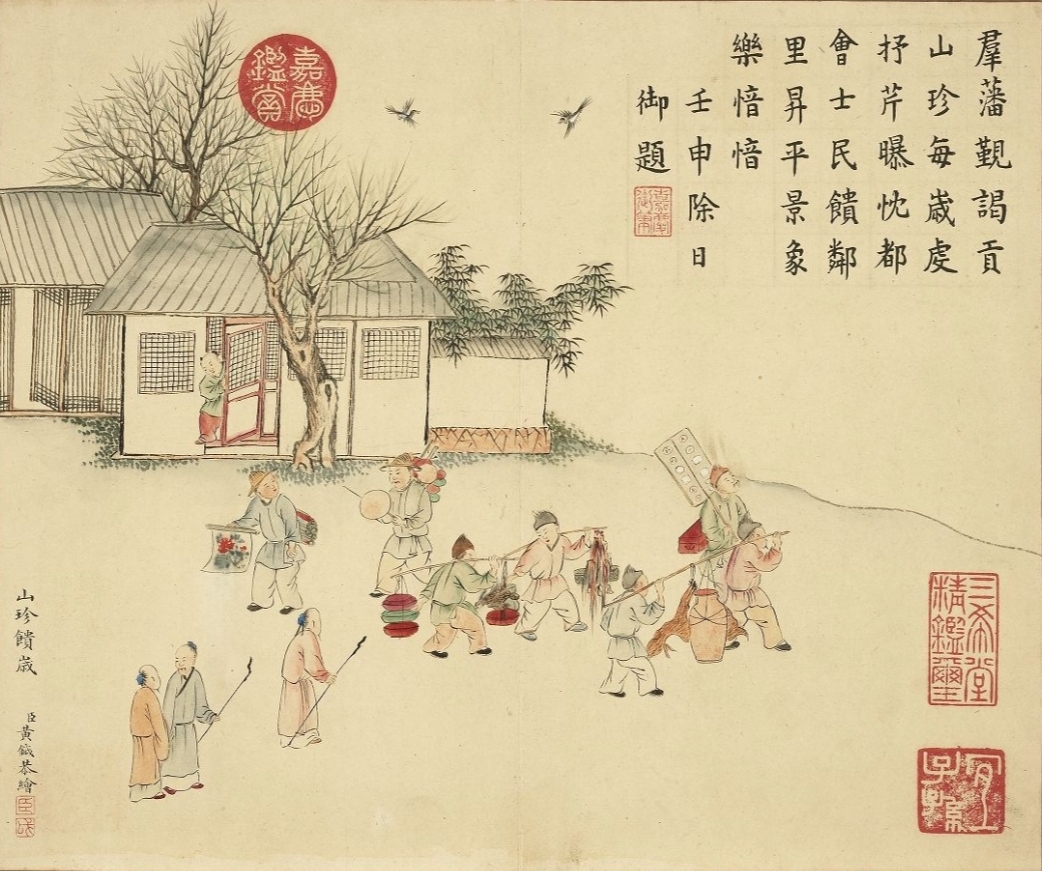 羣藩覲謁貢
山珍每歲虔
抒芹曝忱都
會士民饋鄰
里昇平景象
樂愔愔
壬申除日
御題
嘉慶御筆
嘉慶鑑賞
三希堂精鑑璽
宜子孫
山珍饋歲
臣黃鉞恭繪
臣鉞